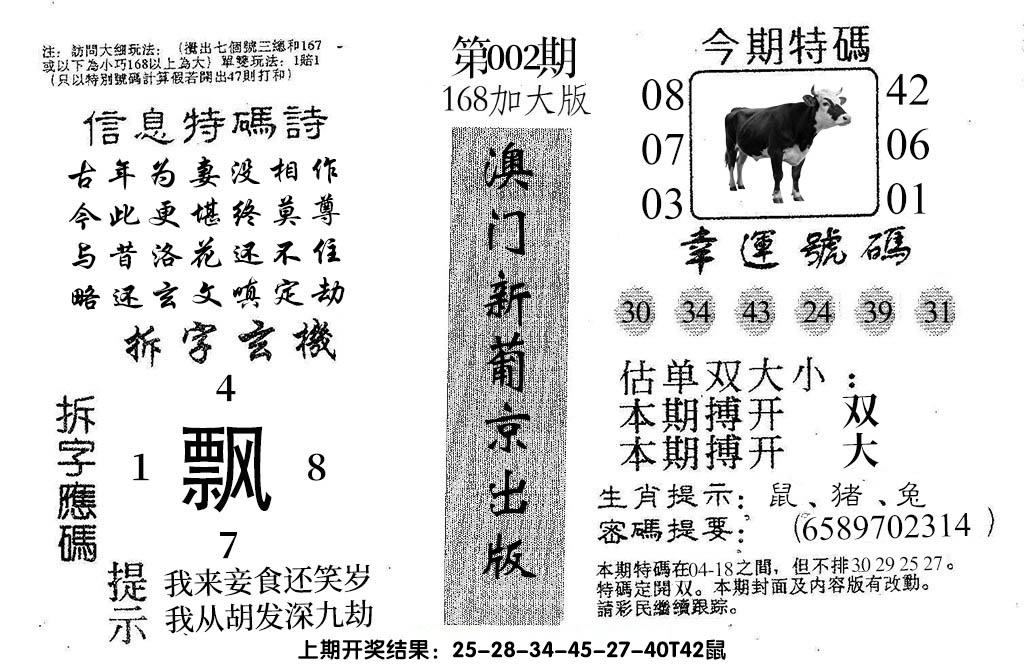 注：訪問大細玩法：（攪出七個號三總和167
或以下為小巧168以上為大）單雙玩法：1賠1
（只以特別號碼計算假若開出47則打和）
信息特碼詩
古年为妻没相作
今此更堪终莫尊
与昔洛花还不住
略还玄文嗔定劫
拆字玄機
拆字應碼
4
1 飘 8
7
提示
我来妾食还笑岁
我从胡发深九劫
第002期
168加大版
澳门新葡京出版
今期特碼
08 42
07 06
03 01
幸運號碼
30 34 43 24 39 31
估单双大小：
本期搏开 双
本期搏开 大
生肖提示：鼠、猪、兔
密碼提要：（6589702314）
本期特碼在04-18之間，但不排30 29 25 27。
特碼定開双。本期封面及内容版有改動。
請彩民繼續跟踪。
上期开奖结果：25-28-34-45-27-40T42鼠